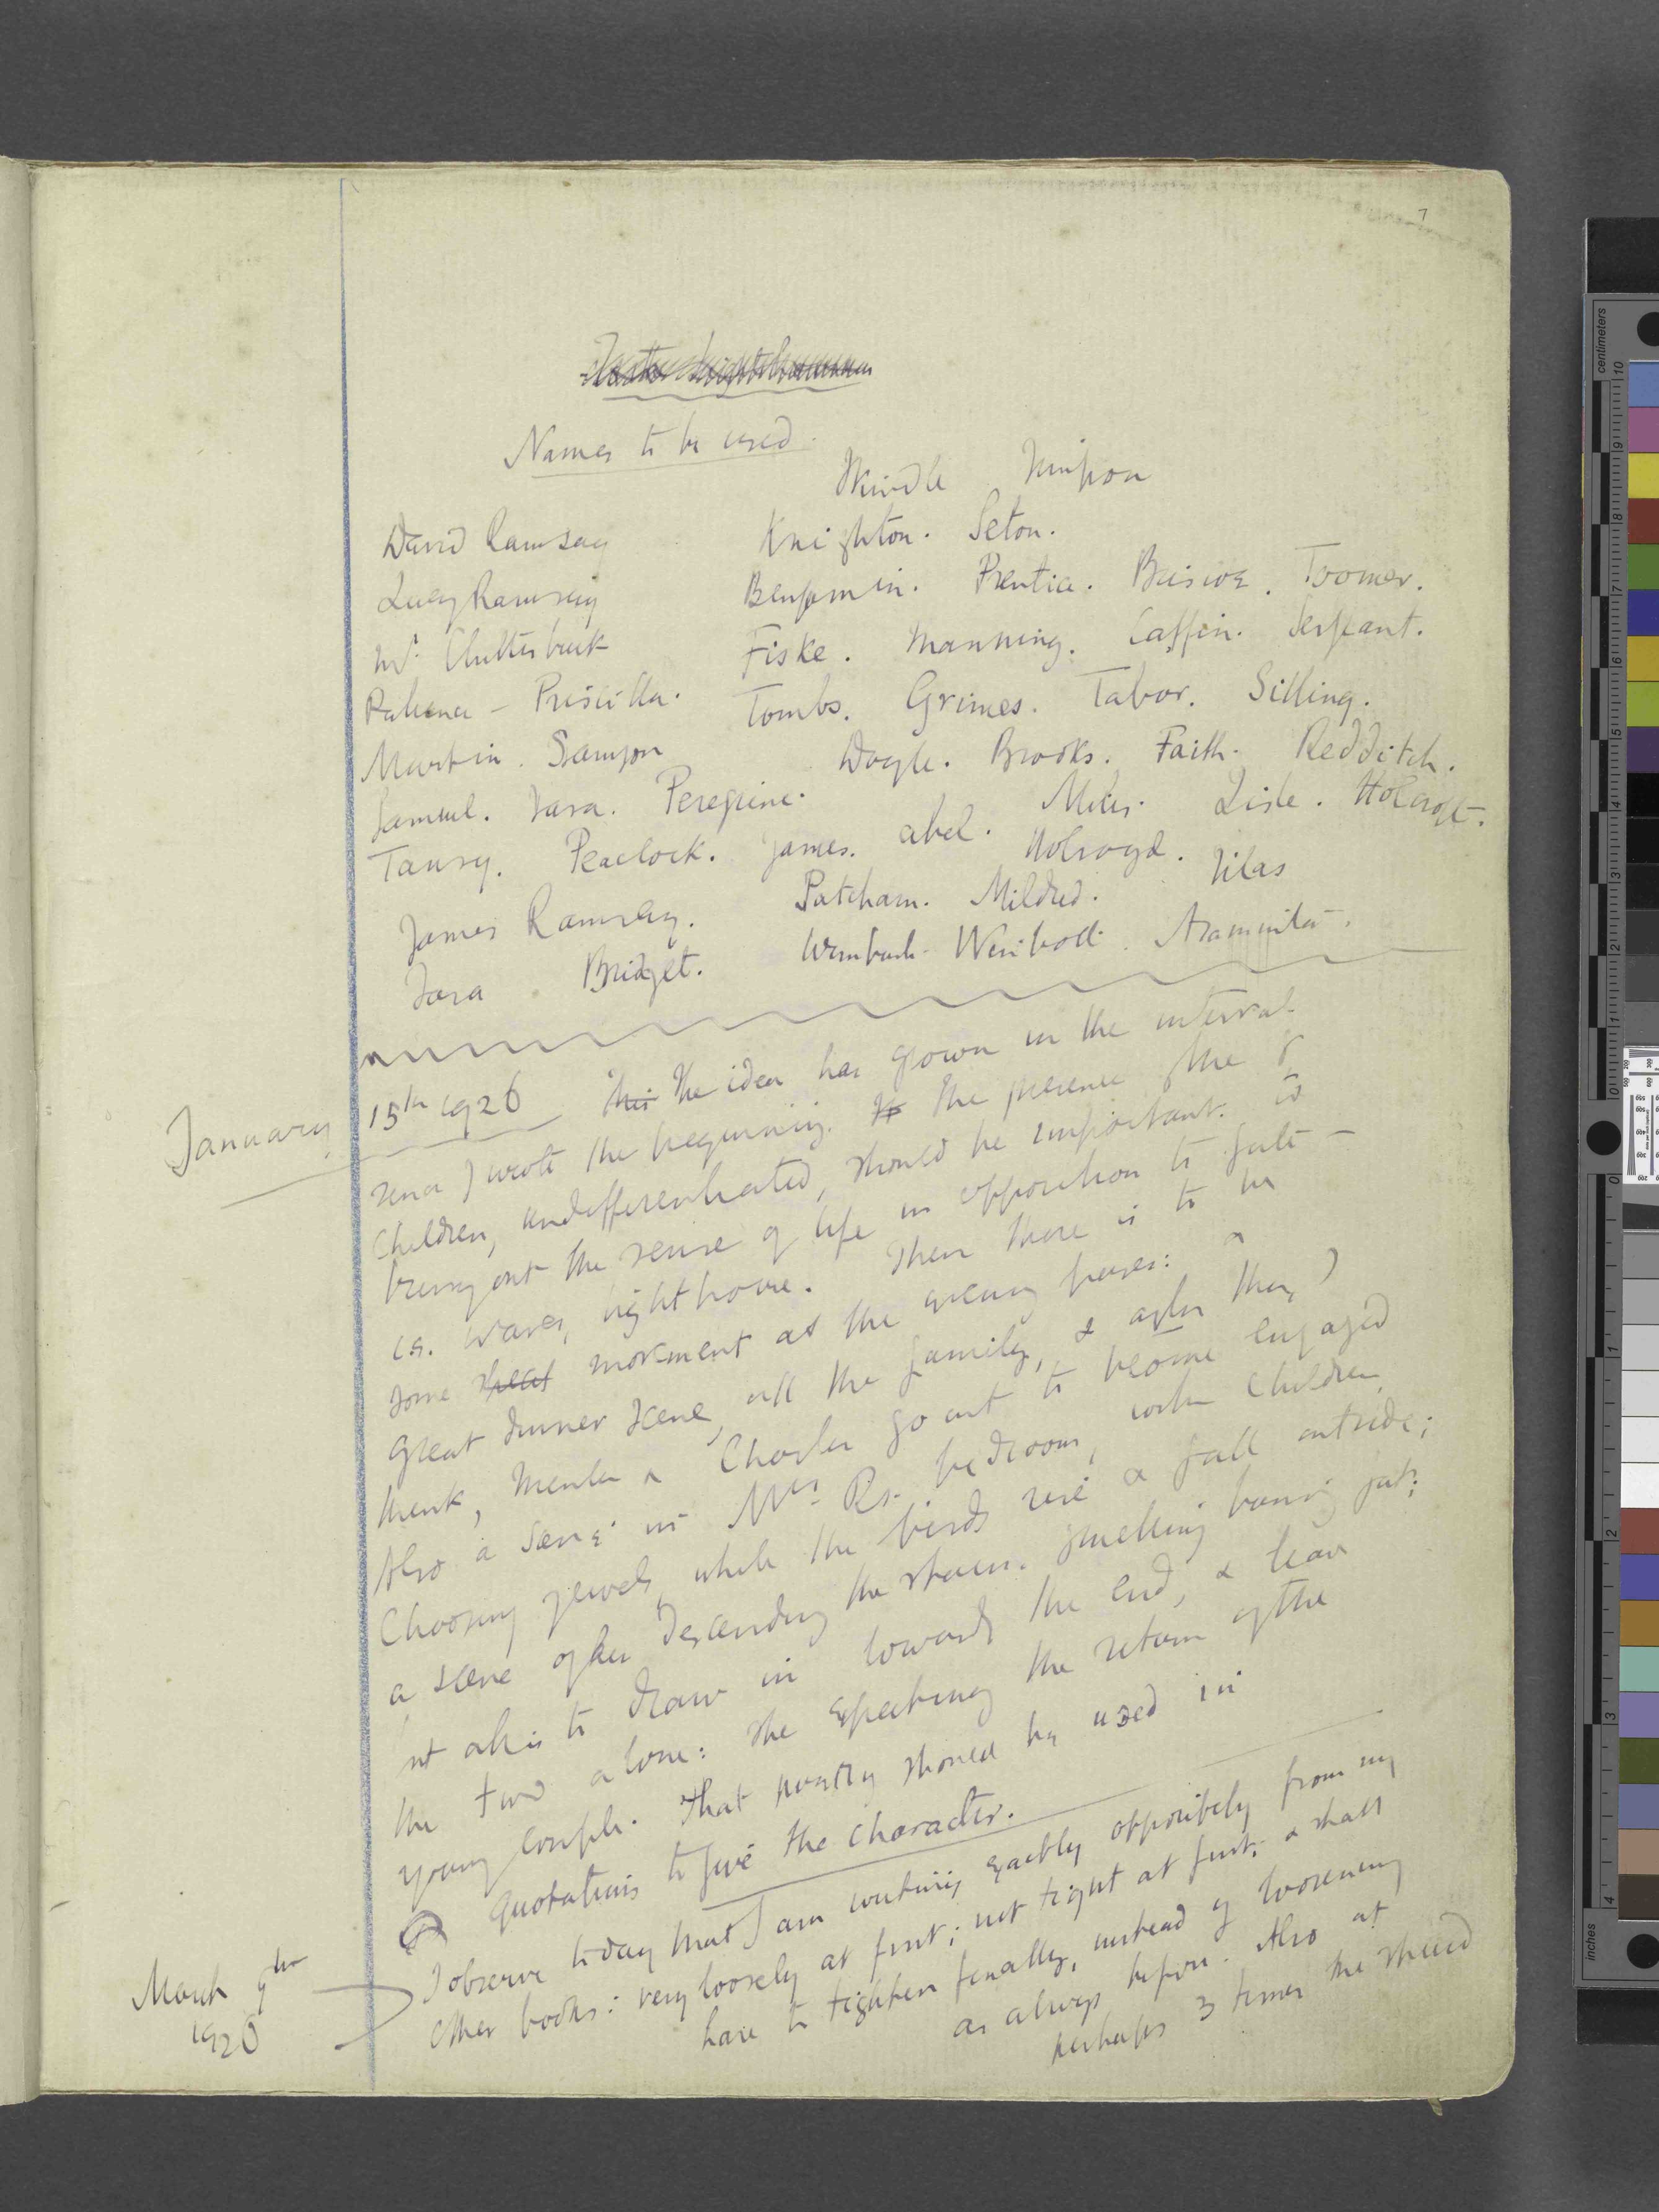 7
Names to be used.
David Ramsay
Knighton. Seton.
Lucy Ramsay
Benjamin. Prentice. Briscoe. Toomer.
Mr. Clutterbuck
Fiske. Manning. Caffin. Sergeant.
Patience - Priscilla.
Tombs. Grimes. Tabor. Silling.
Martin. Sampson
Doyle. Brooks. Faith. Redditch.
Samuel. Sara. Peregrine.
Miles. Lisle. Holcroft.
Tansy. Peacock. James. Abel. Holroyd. Silas
James Ramsay. Patcham. Mildred.
Sara Bridget. Araminta.
January 15th 1926 This The idea has grown in the interval
since I wrote the beginning. The presence of the 8
children, undifferentiated, should be important to
bring out the sense of life in opposition to fate -
i.e. waves, lighthouse. Then there is to be
some great movement at the opening pages: a
great dinner scene, all the family, & after they, I
think, Charles go out to become engaged
Also a scene in Mrs Rs. bedroom, with children
choosing jewels, while the birds rise & fall outside;
a scene of her descending the stairs. smelling burning fat;
nt all is to draw in towards the end, & leave
the two alone: she expecting the return of the
young couple. That poetry should be used in
quotations to give the character.
March 9th
1926
I observe today that I am writing exactly oppositely from my
other books: very loosely at first; not tight at first; & shall
have to tighten finally, instead of loosening
as always before. Also at
perhaps 3 times the speed
centimeters
inches